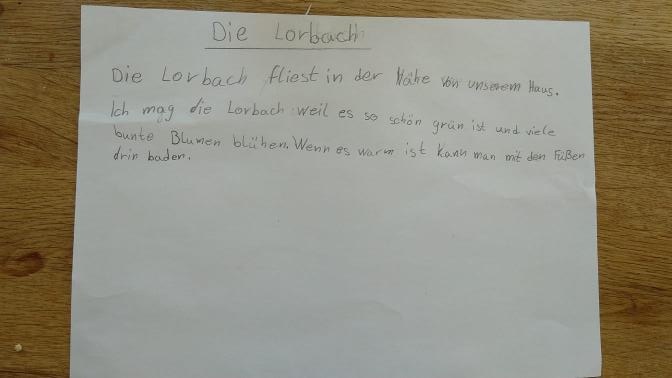 Die Lorbach
Die Lorbach fliest in der Nähe von unserem Haus.
Ich mag die Lorbach weil es so schön grün ist und viele
bunte Blumen blühen. Wenn es warm ist kann man mit den Füßen
drin baden.